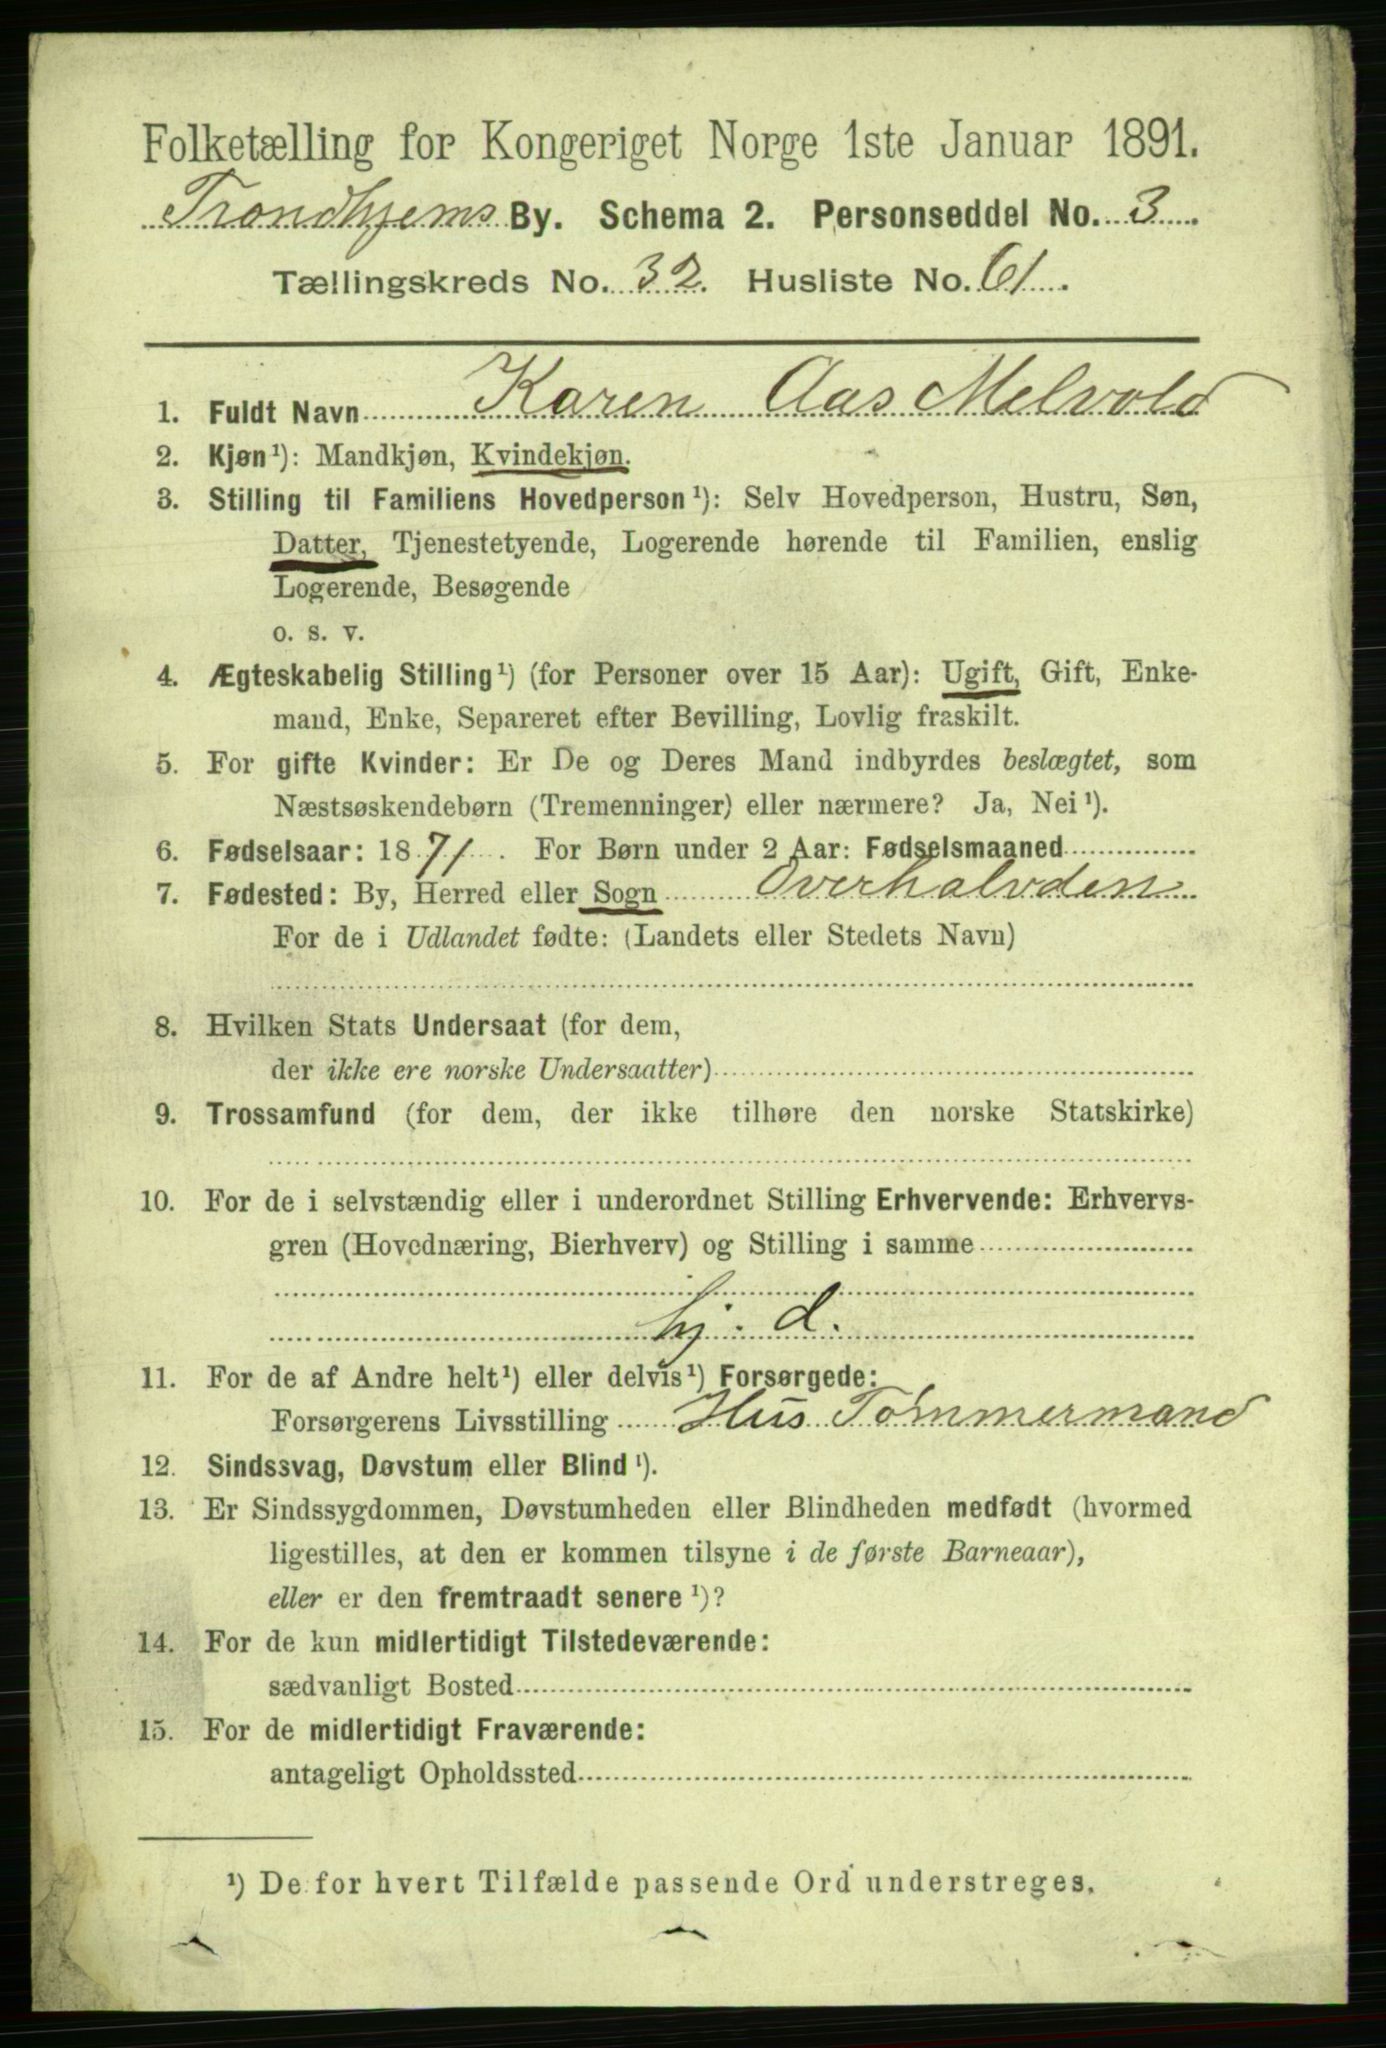 Folketælling for Kongeriget Norge 1ste Januar 1891.
Trondhjems By. Schema 2. Personseddel No. 3.
Tællingskreds No. 32. Husliste No. 61.
1. Fuldt Navn Karen Aas Melvold
2. Kjøn¹): Mandkjøn, Kvindekjøn.
3. Stilling til Familiens Hovedperson¹): Selv Hovedperson, Hustru, Søn,
Datter, Tjenestetyende, Logerende hørende til Familien, enslig
Logerende, Besøgende
o. s. v.
4. Ægteskabelig Stilling¹) (for Personer over 15 Aar): Ugift, Gift, Enke-
mand, Enke, Separeret efter Bevilling, Lovlig fraskilt.
5. For gifte Kvinder: Er De og Deres Mand indbyrdes beslægtet, som
Næstsøskendebørn (Tremenninger) eller nærmere? Ja, Nei¹).
6. Fødselsaar: 1871. For Børn under 2 Aar: Fødselsmaaned
7. Fødested: By, Herred eller Sogn Overhalvden
For de i Udlandet fødte: (Landets eller Stedets Navn)
8. Hvilken Stats Undersaat (for dem,
der ikke ere norske Undersaatter)
9. Trossamfund (for dem, der ikke tilhøre den norske Statskirke)
10. For de i selvstændig eller i underordnet Stilling Erhvervende: Erhvervs-
gren (Hovednæring, Bierhverv) og Stilling i samme
hj. d.
11. For de af Andre helt¹) eller delvis¹) Forsørgede:
Forsørgerens Livsstilling Hus Tømmermand
12. Sindssvag, Døvstum eller Blind¹).
13. Er Sindssygdommen, Døvstumheden eller Blindheden medfødt (hvormed
ligestilles, at den er kommen tilsyne i de første Barneaar),
eller er den fremtraadt senere¹)?
14. For de kun midlertidigt Tilstedeværende:
sædvanligt Bosted
15. For de midlertidigt Fraværende:
antageligt Opholdssted
¹) De for hvert Tilfælde passende Ord understreges.